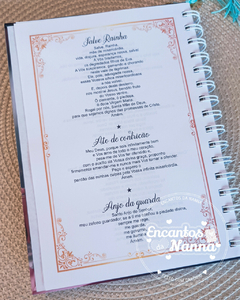 Salve Rainha
Salve, Rainha,
mãe de misericórdia,
vida, doçura, esperança nossa, salve!
A Vós bradamos,
os degredados filhos de Eva.
A Vós suspiramos, gemendo e chorando
neste vale de lágrimas.
Eia, pois, advogada nossa,
esses Vossos olhos misericordiosos
a nós volvei.
E, depois deste desterro,
nos mostrai Jesus, bendito fruto
do Vosso ventre.
Ó clemente, ó piedosa,
ó doce Virgem Maria.
Rogai por nós, Santa Mãe de Deus,
para que sejamos dignos das promessas de Cristo.
Ato de contrição
Meu Deus, porque sois infinitamente bom
e Vos amo de todo o meu coração,
pesa-me de Vos ter ofendido e,
com o auxílio da Vossa divina graça, proponho
firmemente emendar-me e nunca mais Vos tornar a ofender.
Peço e espero o
perdão das minhas culpas pela Vossa infinita misericórdia.
Anjo da guarda
Santo Anjo do Senhor,
meu zeloso guardador, se a ti me confiou a piedade divina,
sempre me rege,
me guarde,
Encantos
da Nanna